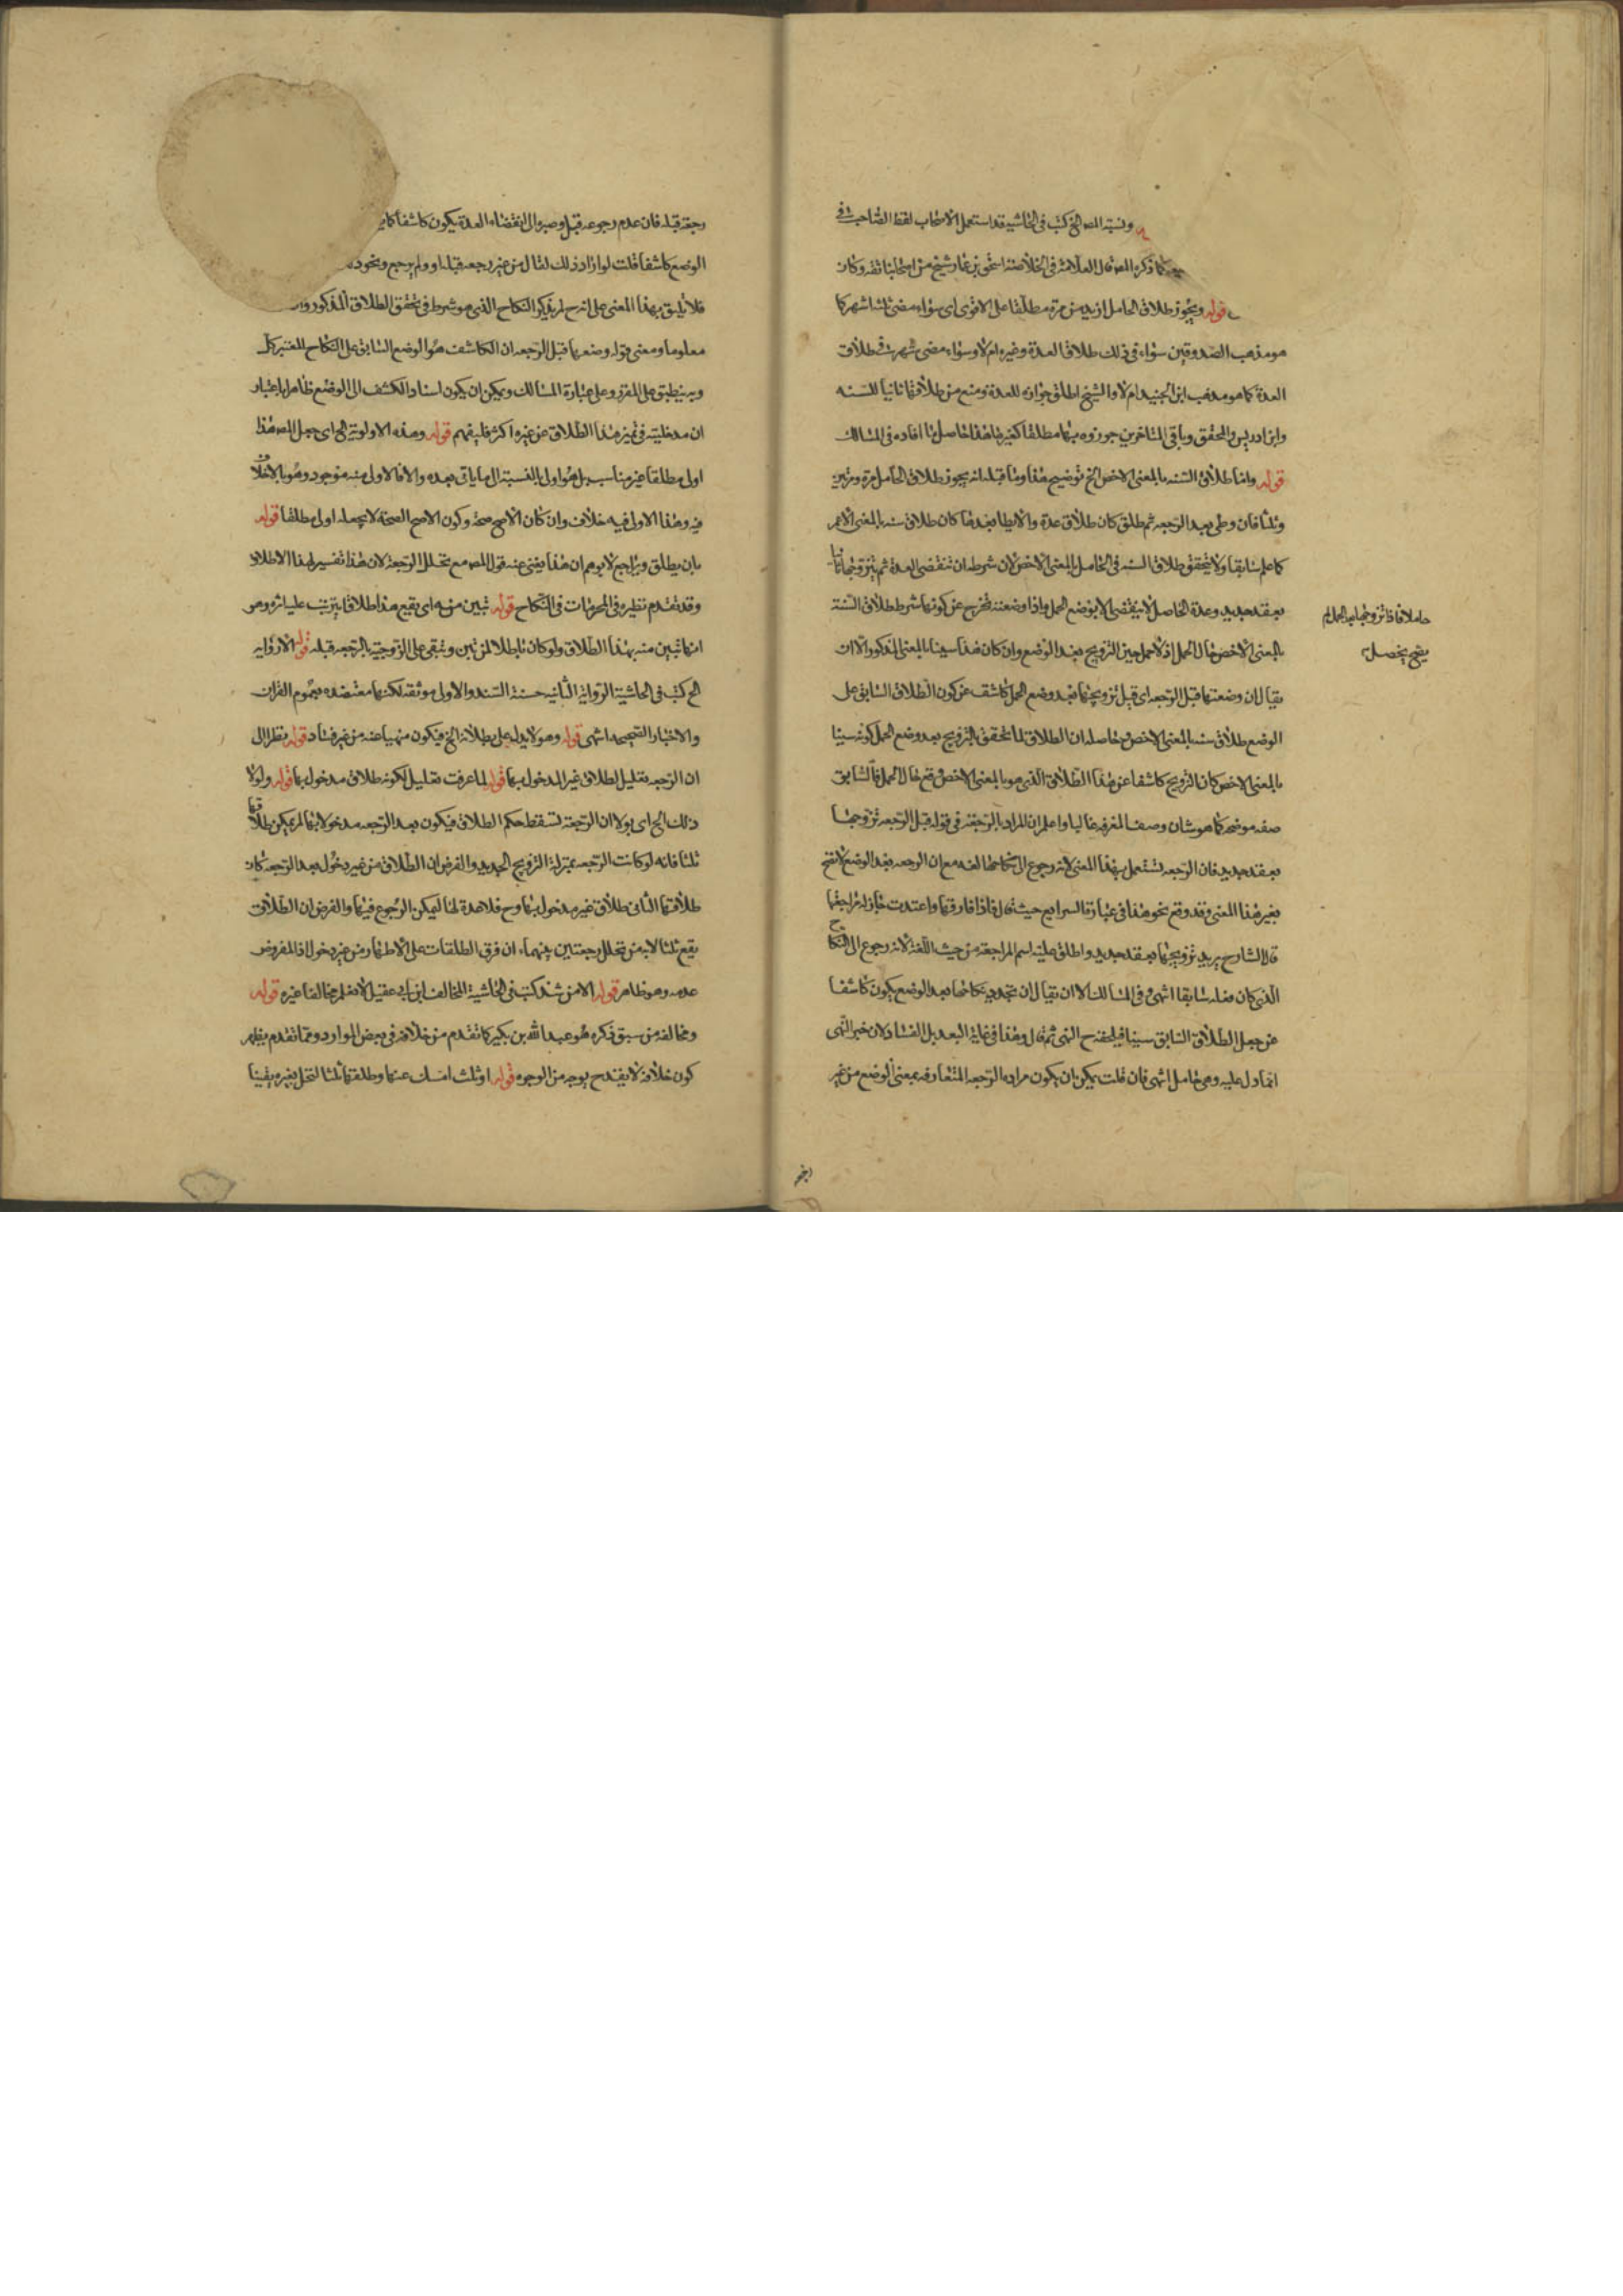 ونسبة المصه الخ كتب فى الحاشية قد استعمل الاصحاب لفظ الصاحب فى
كما ذكره المصه قال العلامة فى الخلاصة اسحق بن عمار شيخ من اصحابنا ثقة وكان
قوله ويجوز طلاق الحامل ازيد من مرة مطلقا على الاقوى اى سواء مضى ثلثة اشهر كما
هو مذهب الصدوقين سواء فى ذلك طلاق العدة وغيره ام لا وسواء مضى شهر فى طلاق
العدة كما هو مذهب ابن الجنيد ام لا والشيخ اطلق جوازه للعدة ومنع من طلاقها ثانيا للسنه
وابن ادريس والمحقق وباقى المتاخرين جوزوه بها مطلقا كغيرها هذا حاصل ما افاده فى المسالك
قوله واما طلاق السنه بالمعنى الاخص الخ توضيح هذا وما قبله انه يجوز طلاق الحامل مرة ومرتين
وثلثا فان وطى بعد الرجعه ثم طلق كان طلاق عدة والا يطا بعدها كان طلاق سنه بالمعنى الاعم
كما علم سابقا ولا يتحقق طلاق السنه فى الحامل بالمعنى الاخص لان شرطه ان تنقضى العدة ثم يتزوجها ثانيا
بعقد جديد وعدة الحامل لا ينقضى الا بوضع الحمل واذا وضعت تخرج عن كونها شرط طلاق السنة
بالمعنى الاخص حال الحمل اذ لا حمل حين التزويج بعد الوضع وان كان هذا سينا بالمعنى المذكور الا ان
يقال ان وضعتها قبل الرجعه اى قبل تزويجها بعد وضع الحمل كاشف عن كون الطلاق السابق على
الوضع طلاق سنه بالمعنى الاخص وحاصله ان الطلاق لما تحقق التزويج بعد وضع الحمل كونه سينا
بالمعنى الاخص كان التزويج كاشفا عن هذا الطلاق الذى هو بالمعنى الاخص وقع حال الحمل فالسابق
صفه موضحه كما هو شان وصف المعرفه غالبا واعلم ان المراد بالرجعة فى قوله قبل الرجعه تزوجها
بعقد جديد فان الرجعه تستعمل بهذا المعنى لانه رجوع الى نكاحها لغه مع ان الرجعه بعد الوضع لا تصح
بغير هذا المعنى وقد وقع نحو هذا فى عبارة السرايع حيث قال فاذا فارقها واعتدت جاز له مراجعتها
قال الشارح يريد تزويجها بعقد جديد واطلق عليه اسم المراجعة من حيث اللغة لانه رجوع الى النكاح
الذى كان معله سابقا انتهى وفى المسالك الا ان يقال ان تجديد نكاحها بعد الوضع يكون كاشفا
عن جعل الطلاق السابق سينا فيلحقه ح النهى ثم قال وهذا فى غاية البعد بل الفساد لان خبر النهى
انما دل عليه وهى حامل انتهى فان قلت يمكن ان يكون مراده الرجعه المتعارفه بمعنى الوضع من غير
حاملا فاذا تزوجها بعد الحمل لم
يصح يحصل
رجعة قبله فان عدم رجوعه قبل وصبره الى انقضاء العدة يكون كاشفا كما
الوضع كاشفا قلت لو اراد ذلك لقال من غير رجعه قبله او ولم يرجع ونحو
فلا يليق بهذا المعنى على انه ح لم يذكر النكاح الذى هو شرط فى تحقق الطلاق المذكور
معلوما ومعنى قوله وضعها قبل الرجعه ان الكاشف هو الوضع السابق على النكاح المعتبر
وبه ينطبق على المقرر وعلى عبارة المسالك ويمكن ان يكون اسناد الكشف الى الوضع ظاهرا باعتبار
ان مدخليته فى تميز هذا الطلاق عن غيره اكثر فليفهم قوله وهذه الاولوية الخ اى جعل المصه هذا
اولى مطلقا غير مناسب بل هو اولى بالنسبة الى ما ياتى بعده والا فالاولى منه موجود وهو بالاخلاف
فيه وهذا الاولى فيه خلاف وان كان الاصح صحة وكون الاصح الصحة لا يجعله اولى مطلقا قوله
بان يطلق ويراجع لا يوهم ان هذا يغنى عنه قول المصه مع تخلل الرجعة لان هذا تفسير لهذا الاطلاق
وقد تقدم نظيره فى المحرمات فى النكاح قوله تبين منه اى يقع هذا طلاقا يترتب عليه اثره وهو
انها تبين منه بهذا الطلاق ولو كان باطلا لم تبن وتبقى على الزوجية بالرجعه قبله قوله الا رواية
الخ كتب فى الحاشية الرواية الثانيه حسنة السند والاولى موثقه لكنها معتضده بعموم القران
والاخبار الصحيحه انتهى قوله وهو لا يدل على بطلانه الخ فيكون منهيا عنه من غير فساد قوله نظرا الى
ان الرجعه تعليل لطلاق غير المدخول بها قوله لما عرفت تعليل لكونه طلاق مدخول بها قوله ولولا
ذلك الخ اى لولا ان الرجعة تسقط حكم الطلاق فيكون بعد الرجعه مدخولا بها لم يمكن طلاقها
ثلثا فانه لو كانت الرجعه بمنزلة التزويج الجديد والفرض ان الطلاق من غير دخول بعد الرجعه كان
طلاقها الثانى طلاق غير مدخول بها وح فلا عدة لها ليمكن الرجوع فيها والفرض ان الطلاق
يقع ثلثا لا بد من تخلل رجعتين بينهما ان فرق الطلقات على الاطهار من غير دخول اذ المفروض
عدمه وهو ظاهر قوله الا من شذ كتب فى الحاشية المخالف ابن ابى عقيل لا نعلم مخالفا غيره قوله
ومخالفه من سبق ذكره هو عبد الله بن بكير كما تقدم من خلافه فى بعض الموارد ومما تقدم يظهر
كون خلافه لا يقدح بوجه من الوجوه قوله او ثلث امسك عنها وطلقها ثلثا لتحل لغيره يقينا